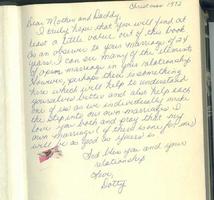 Christmas 1972
Dear Mother and Daddy,
I truly hope that you will find at
least a little value out of this book
as an observer to your marriage of 29
years. I can see many of the elements
of open marriage in your relationship
However, perhaps there is something
here which will help to understand
yourselves better and also help each
one of us as we individually make
the step into our own marriages. I
love you both and pray that my
own marriage (if there is one for me)
will be as good as yours is
God bless you and your
relationship
Love,
Dotty